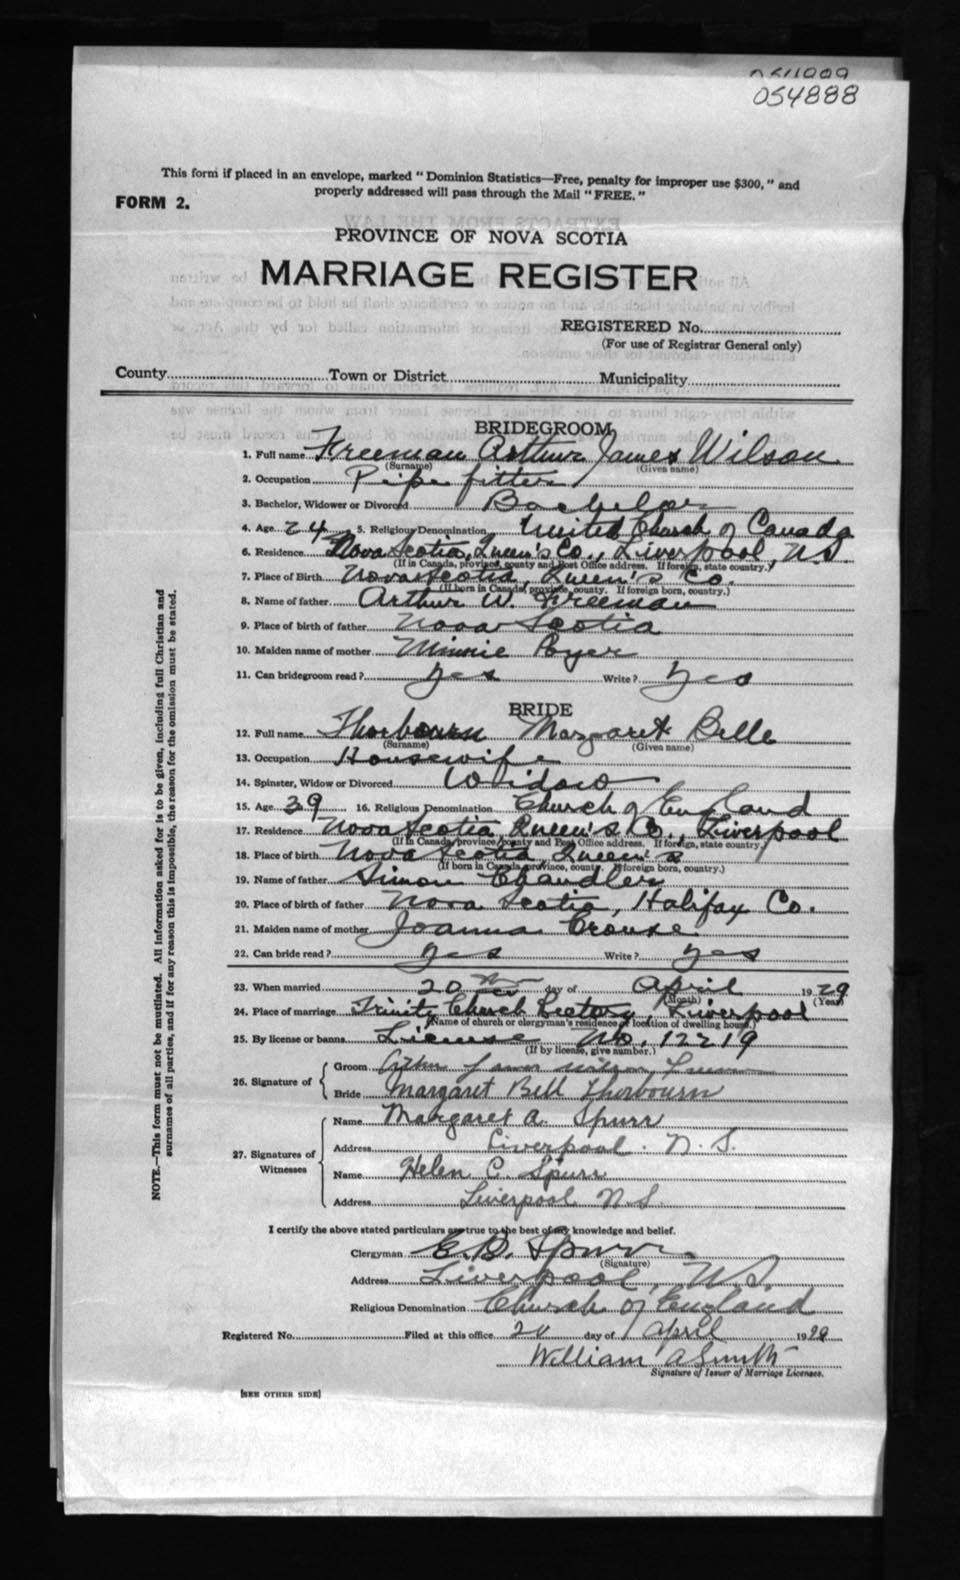 054888
This form if placed in an envelope, marked "Dominion Statistics—Free, penalty for improper use $300," and
properly addressed will pass through the Mail "FREE."
FORM 2.
PROVINCE OF NOVA SCOTIA
MARRIAGE REGISTER
REGISTERED No.
(For use of Registrar General only)
County Town or District Municipality
BRIDEGROOM
1. Full name Freeman Arthur James Wilson
(Surname) (Given name)
2. Occupation Pipe fitter
3. Bachelor, Widower or Divorced Bachelor
4. Age 24 5. Religious Denomination United Church of Canada
6. Residence Nova Scotia, Queen's Co., Liverpool, N.S.
(If in Canada, province, county and Post Office address. If foreign, state country.)
7. Place of Birth Nova Scotia, Queen's Co.
(If born in Canada, province, county. If foreign born, country.)
8. Name of father Arthur W. Freeman
9. Place of birth of father Nova Scotia
10. Maiden name of mother Minnie
11. Can bridegroom read? Yes Write? Yes
BRIDE
12. Full name Thorbourn Margaret Belle
(Surname) (Given name)
13. Occupation Housewife
14. Spinster, Widow or Divorced Widow
15. Age 39 16. Religious Denomination Church of England
17. Residence Nova Scotia, Queen's Co., Liverpool
(If in Canada, province, county and Post Office address. If foreign, state country.)
18. Place of birth Nova Scotia, Queen's
(If born in Canada, province, county. If foreign born, country.)
19. Name of father Simon Chandler
20. Place of birth of father Nova Scotia, Halifax Co.
21. Maiden name of mother Joanna Crouse
22. Can bride read? Yes Write? Yes
23. When married 20 day of April 1929
(Month) (Year)
24. Place of marriage Trinity Church Rectory, Liverpool
(Name of church or clergyman's residence or location of dwelling house.)
25. By license or banns License No. 12219
(If by license, give number.)
26. Signature of
Groom Arthur James Wilson Freeman
Bride Margaret Bell Thorbourn
27. Signatures of Witnesses
Name Margaret A. Spurr
Address Liverpool. N.S.
Name Helen C. Spurr
Address Liverpool N.S.
I certify the above stated particulars are true to the best of my knowledge and belief.
Clergyman E.B. Spurr
(Signature)
Address Liverpool, N.S.
Religious Denomination Church of England
Registered No. Filed at this office 20 day of April 1929
William A Smith
Signature of Issuer of Marriage Licenses.
[SEE OTHER SIDE]
NOTE.—This form must not be mutilated. All information asked for is to be given, including full Christian and
surnames of all parties, and if for any reason this is impossible, the reason for the omission must be stated.